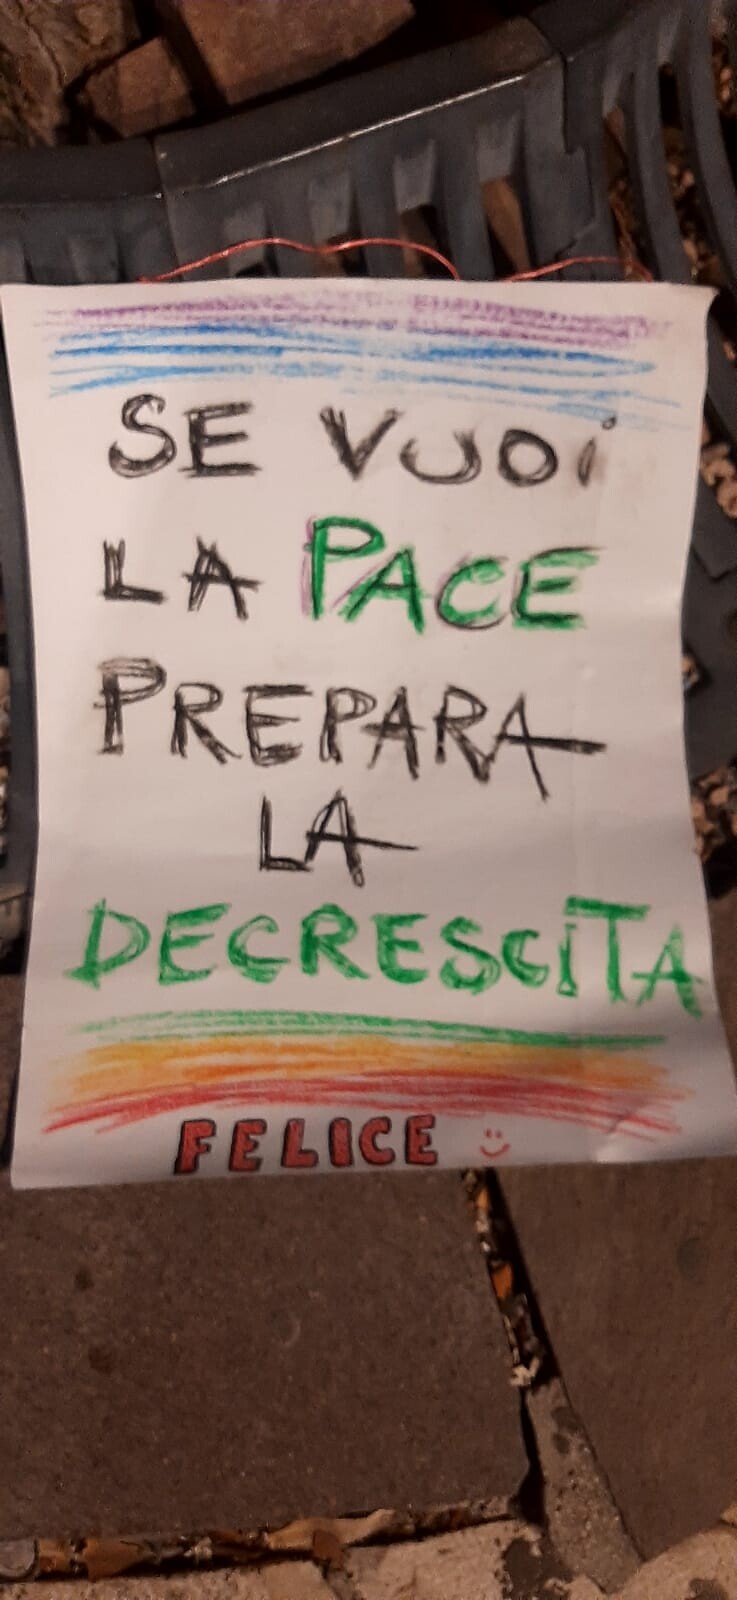 SE VUOi
LA PACE
PREPARA
LA
DECRESCITA
FELICE